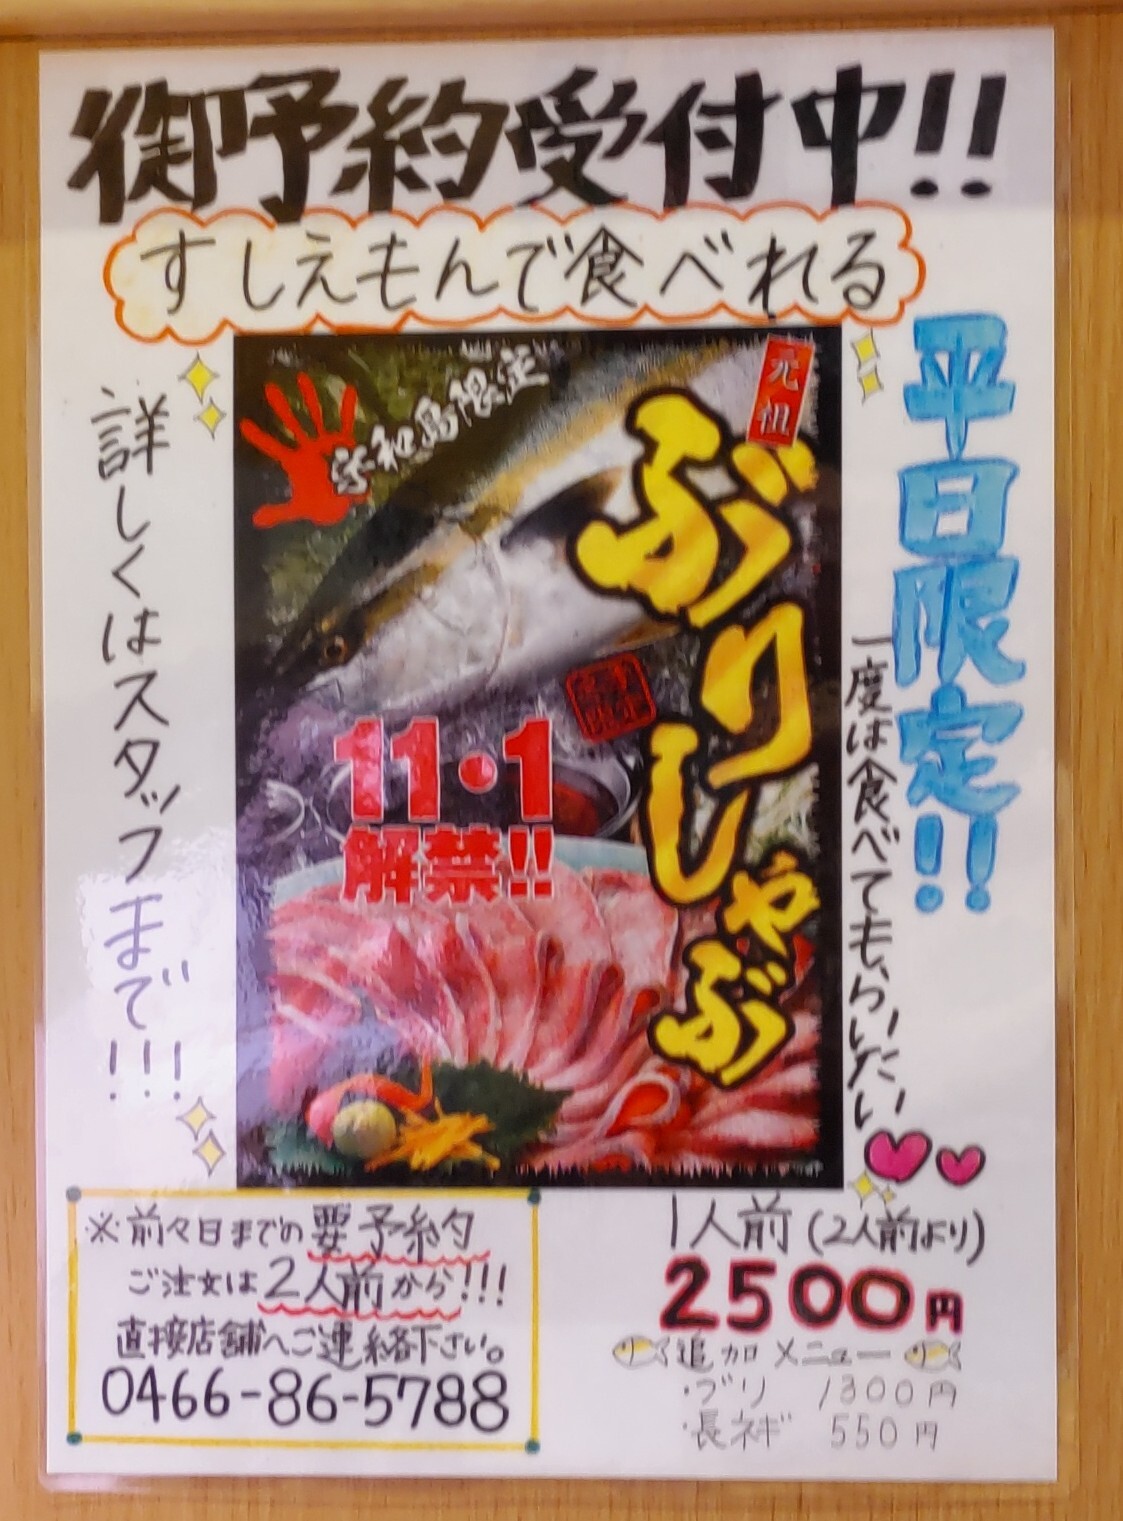 御予約受付中!!
すしえもんで食べれる
平日限定!!
一度は食べてもらいたい
詳しくはスタッフまで!!!
宇和島限定
元祖
ぶりしゃぶ
11・1
解禁!!
※前々日までの要予約
ご注文は2人前から!!!
直接店舗へご連絡下さい。
0466-86-5788
1人前(2人前より)
2500円
追加メニュー
・ブリ 1300円
・長ネギ 550円